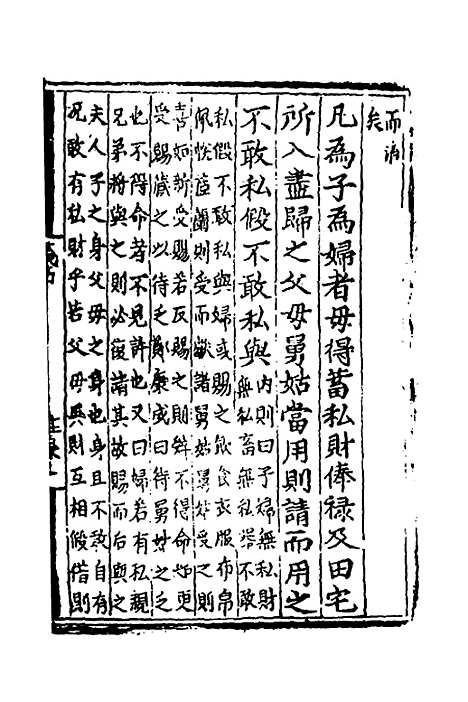 而治
矣
凡為子為婦者毋得蓄私財俸禄及田宅
所入盡歸之父母舅姑當用則請而用之
不敢私假不敢私與內則曰子婦無私財
無私畜無私器不敢
私假不敢私與婦或賜之飲食衣服布帛
佩帨茝蘭則受而獻諸舅姑舅姑受之則
喜如新受賜若反賜之則辭不得命如更
受賜藏之以待乏鄭康成曰待舅姑之乏
也不得命者不見許也又曰婦若有私親
兄弟將與之則必復請其故賜而后與之
夫人子之身父母之身也身且不敢自有
况敢有私財乎若父母異財互相假借則